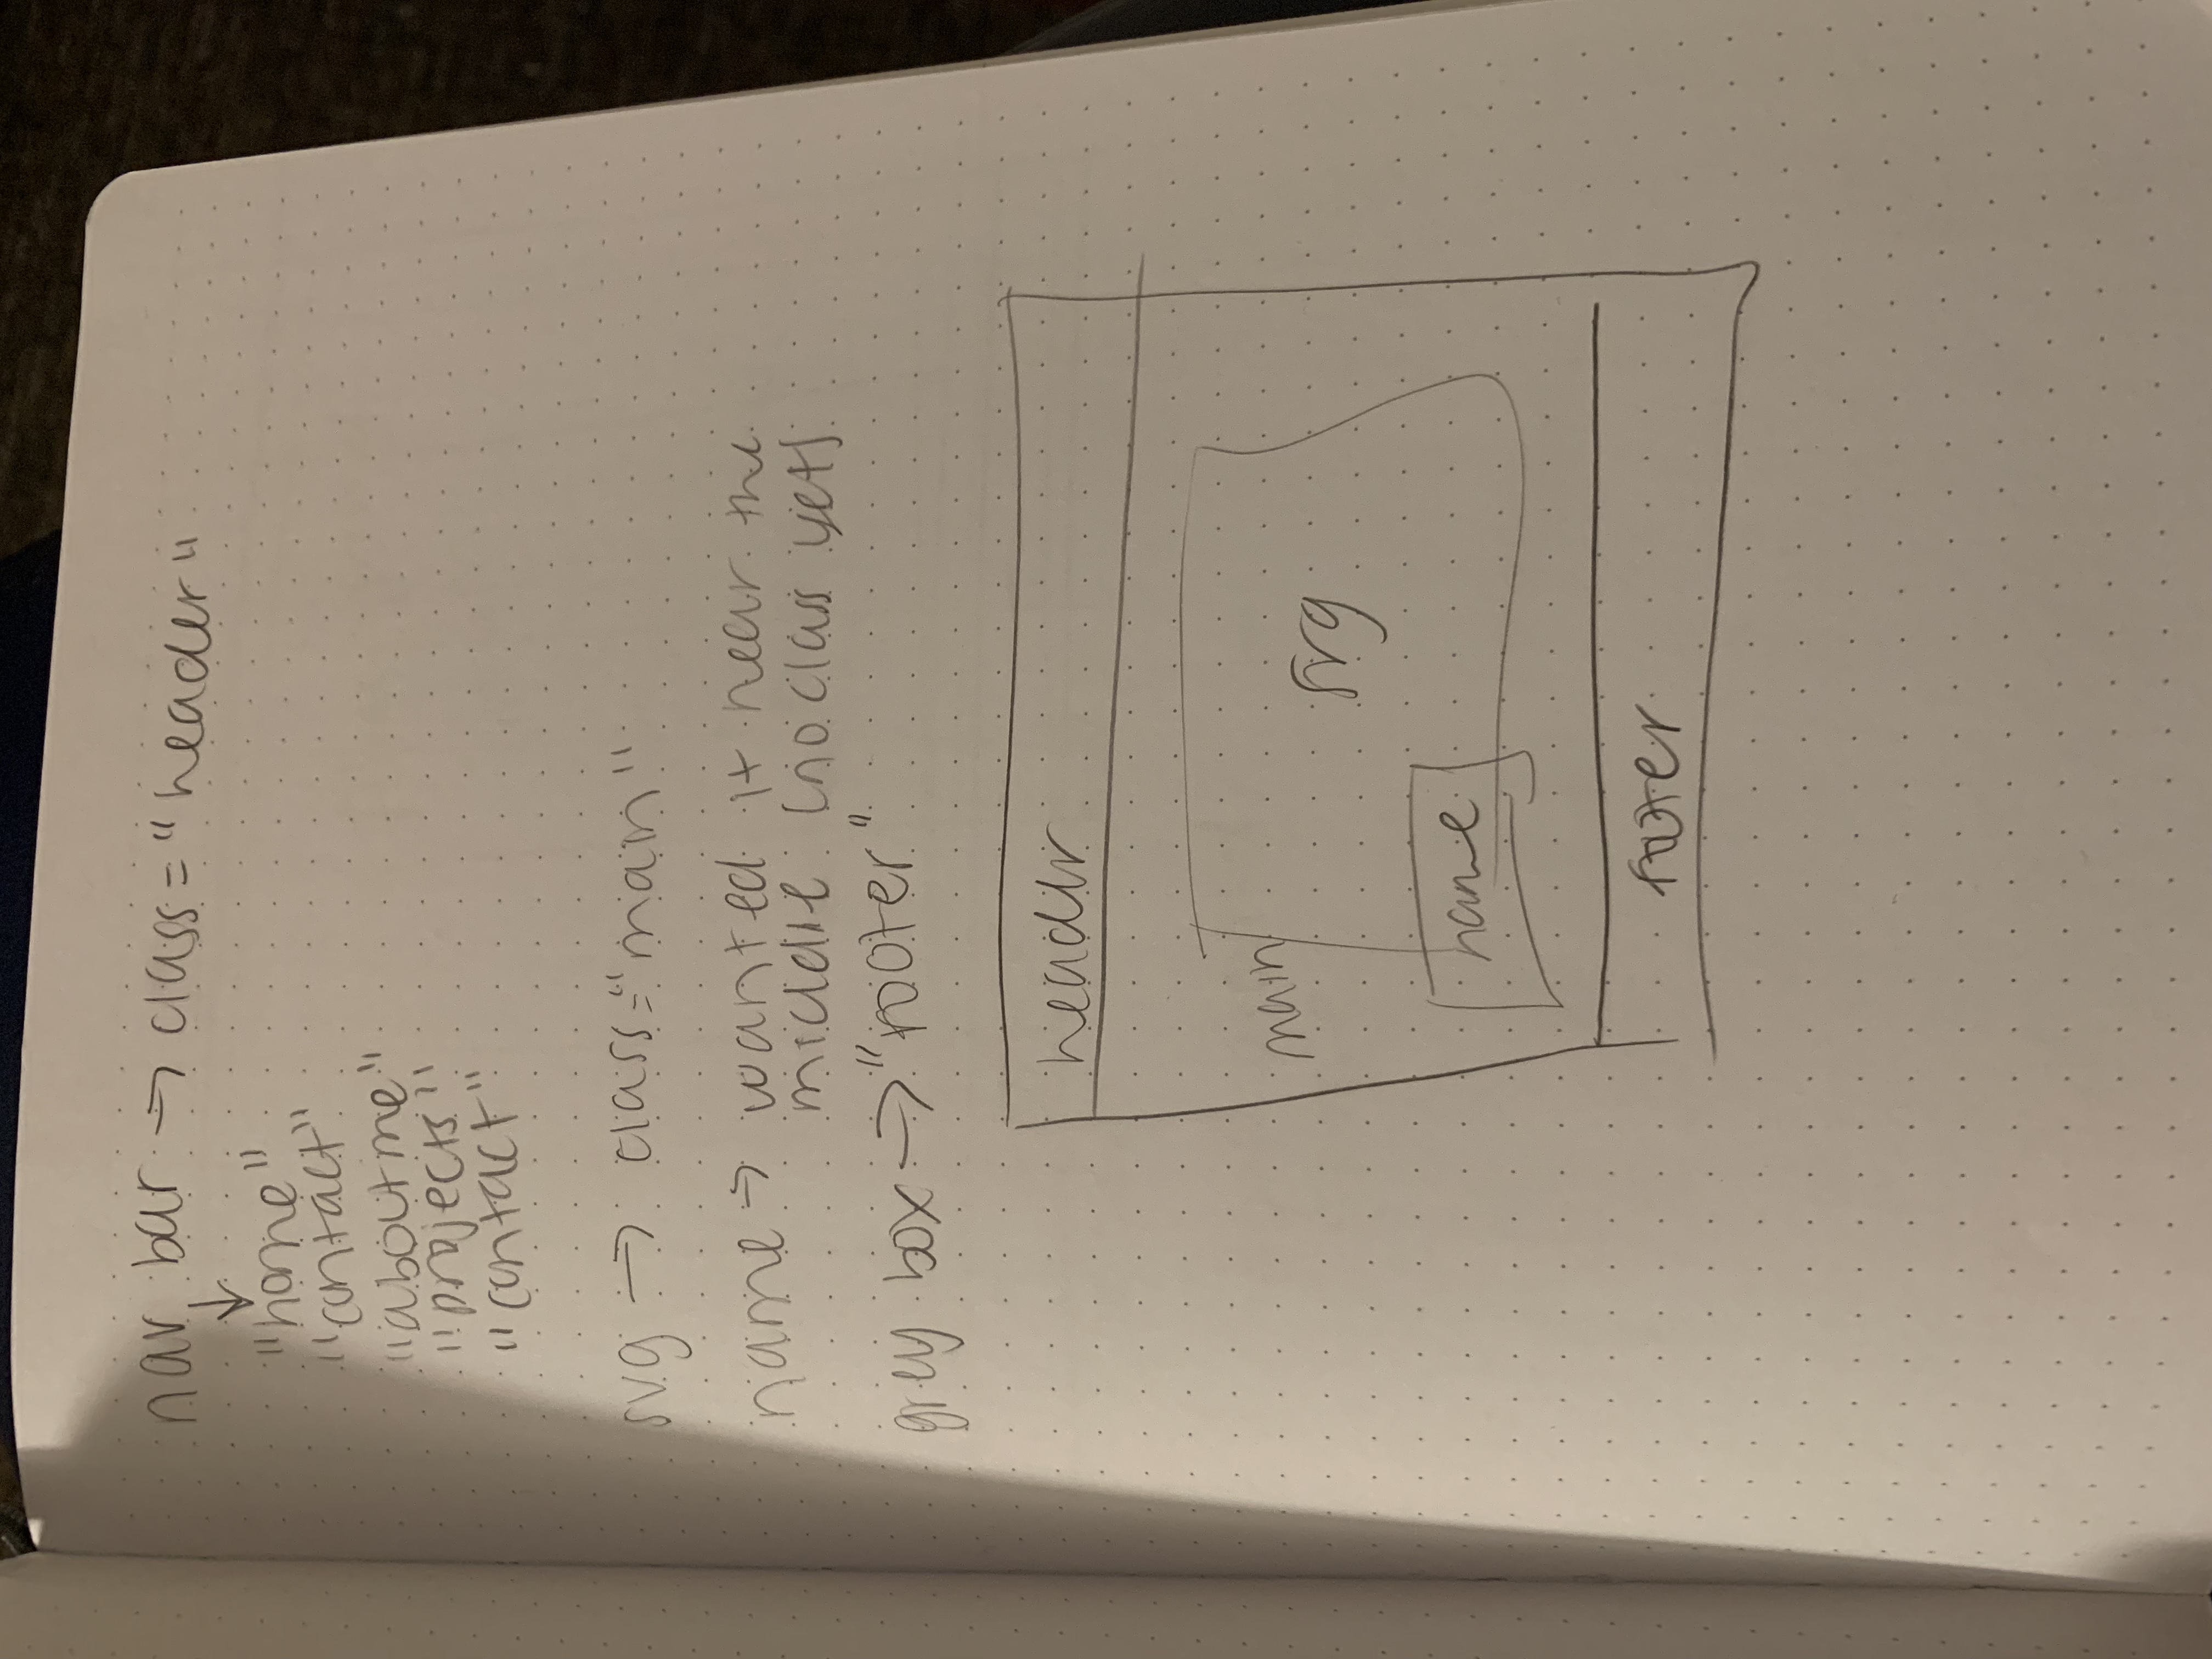 nav bar → class = "header"
↓
"home"
"contact"
"aboutme"
"projects"
"contact"
svg → class="main"
name → wanted it near the
middle (no class yet)
grey box → "footer"
header
main
svg
name
footer